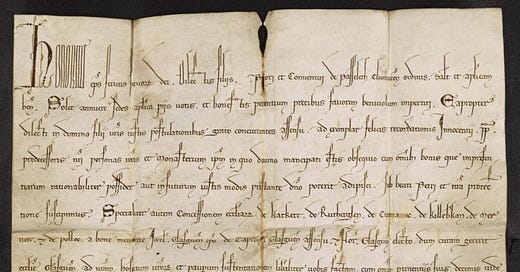 Honorius ep̄s servus servoꝝ dei. Dilec̄tis filijs Priori et Conventui de Passeleth Cluniaceñ ordinis, salt̄ et ap̄licam
beñ. Solet annuere sedes ap̄lica pijs votis, et honestis petentium precibus favorem benivolum impertiri. Eapropter
dilecti in domino filij ur̄is iustis postulationibus grato concurrentes assensu, ad exemplar felicis recordationis Innocentij pp̄.
predecessoris nr̄i personas ur̄as et monasterium ip̄m in quo divino mancipati estis obsequio cum omib; bonis que impresen
tiarum rationabiliter possidet aut infuturum iustis modis prestante dn̄o poterit adipisci. sub beati Petri et nr̄a protec
tione suscipimus. Specialiter autem Concessionem eccl̄iarum de karkert, de Ruthergleñ, de Curmanoc, de killebkan, de mere
nes, & de polloc, a bone memorie Jocel. Glasgueñ ep̄o de Capituli Glasgueñ assensu, et Flor̄. Glasgueñ electo, dum curam gereret
eccl̄ie Glasgueñ ad ur̄am hospitum ur̄orum et pauperum sustentationem liberaliter vobis factam, cum